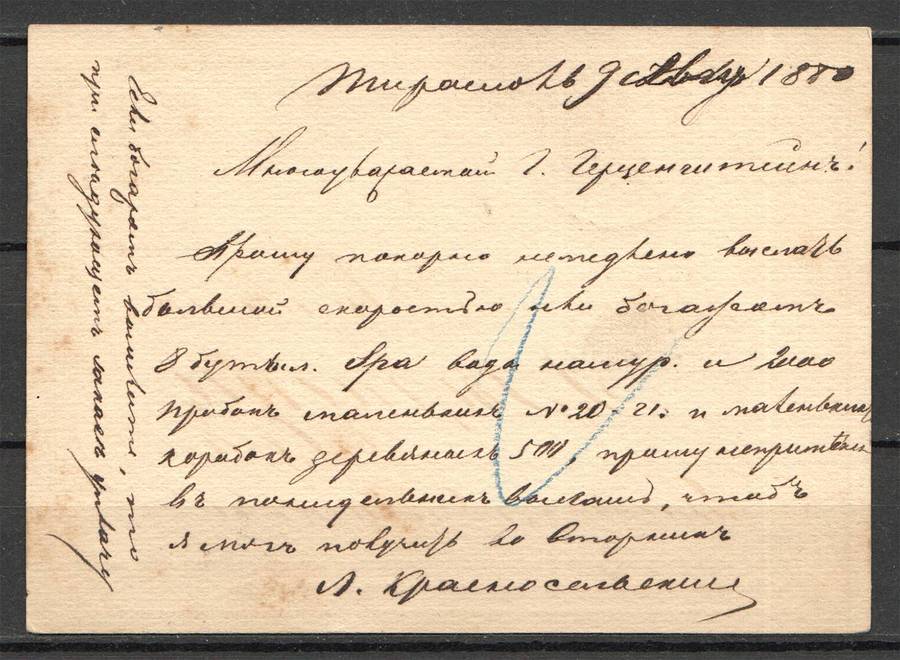 Тирасполь 9 1880
Многоуважаемый Г. Герценштейнъ!
Прошу покорно немедлено выслать
большой скоростью или богажомъ
8 бутыл. Spa вода натур. и 2000
пробокъ маленькихъ № 20-21. и маленькихъ
коробокъ деревяныхъ 500, прошу непременно
въ понидельникъ выслать, чтобъ
я могъ получить во вторникъ
Л. Красносельскій
Если богажомъ вышлите, то
при следующемъ заказе уплачу